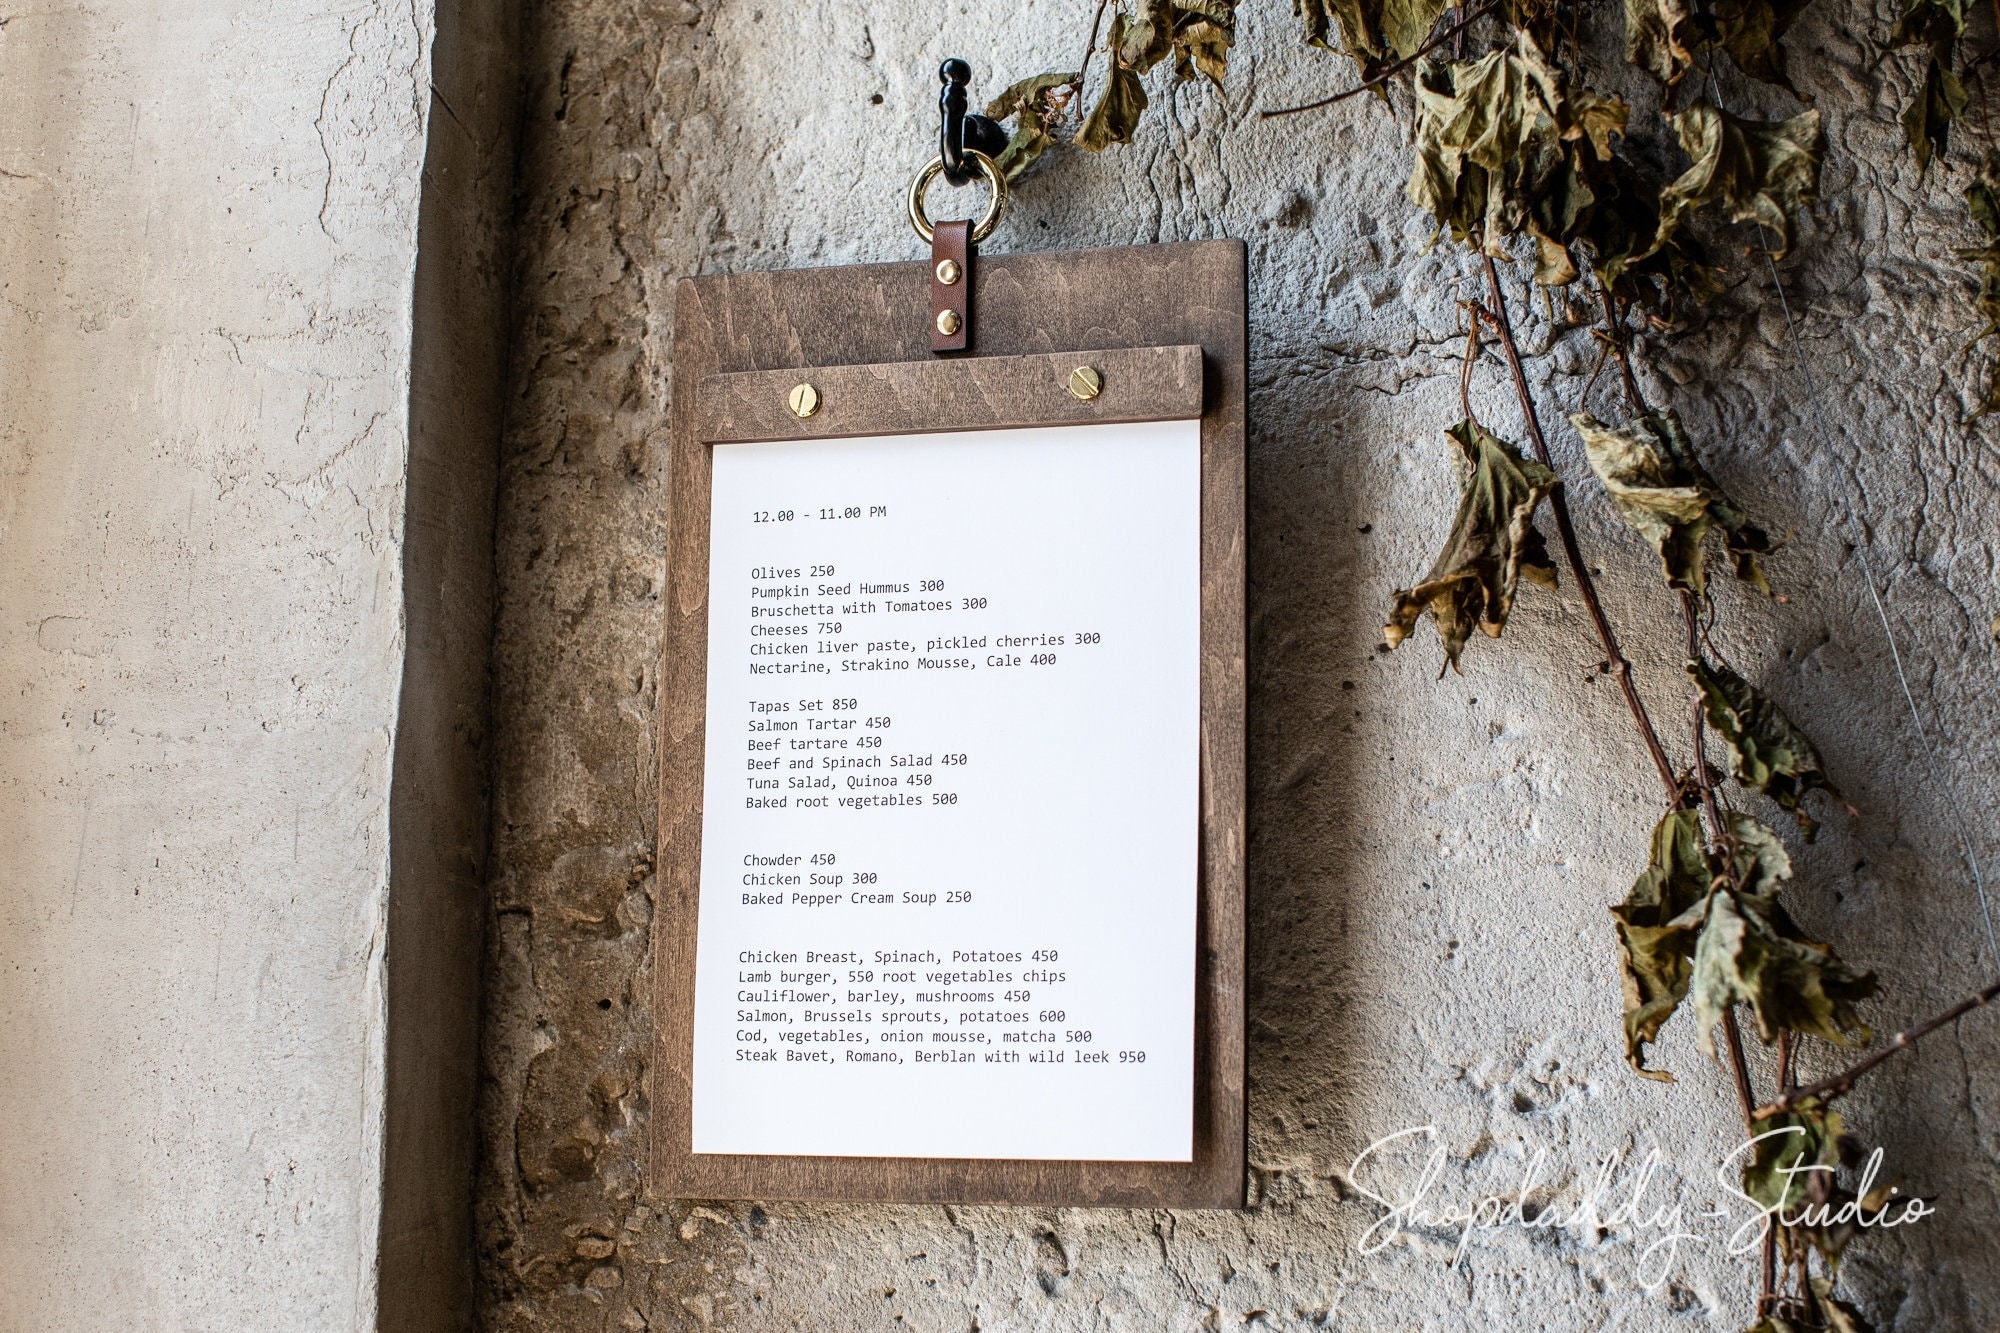 12.00 - 11.00 PM
Olives 250
Pumpkin Seed Hummus 300
Bruschetta with Tomatoes 300
Cheeses 750
Chicken liver paste, pickled cherries 300
Nectarine, Strakino Mousse, Cale 400
Tapas Set 850
Salmon Tartar 450
Beef tartare 450
Beef and Spinach Salad 450
Tuna Salad, Quinoa 450
Baked root vegetables 500
Chowder 450
Chicken Soup 300
Baked Pepper Cream Soup 250
Chicken Breast, Spinach, Potatoes 450
Lamb burger, 550 root vegetables chips
Cauliflower, barley, mushrooms 450
Salmon, Brussels sprouts, potatoes 600
Cod, vegetables, onion mousse, matcha 500
Steak Bavet, Romano, Berblan with wild leek 950
Shopdaddy-Studio